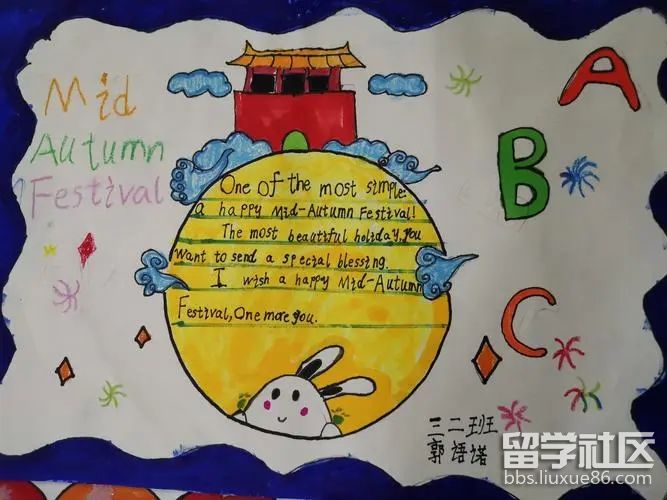 Mid
Autumn
Festival
A
B
C
One of the most simple:
a happy Mid-Autumn Festival!
The most beautiful holiday, you
want to send a special blessing.
I wish a happy Mid-Autumn
Festival, One more you.
三二班
郭语诺
留学社区
bbs.liuxue86.com